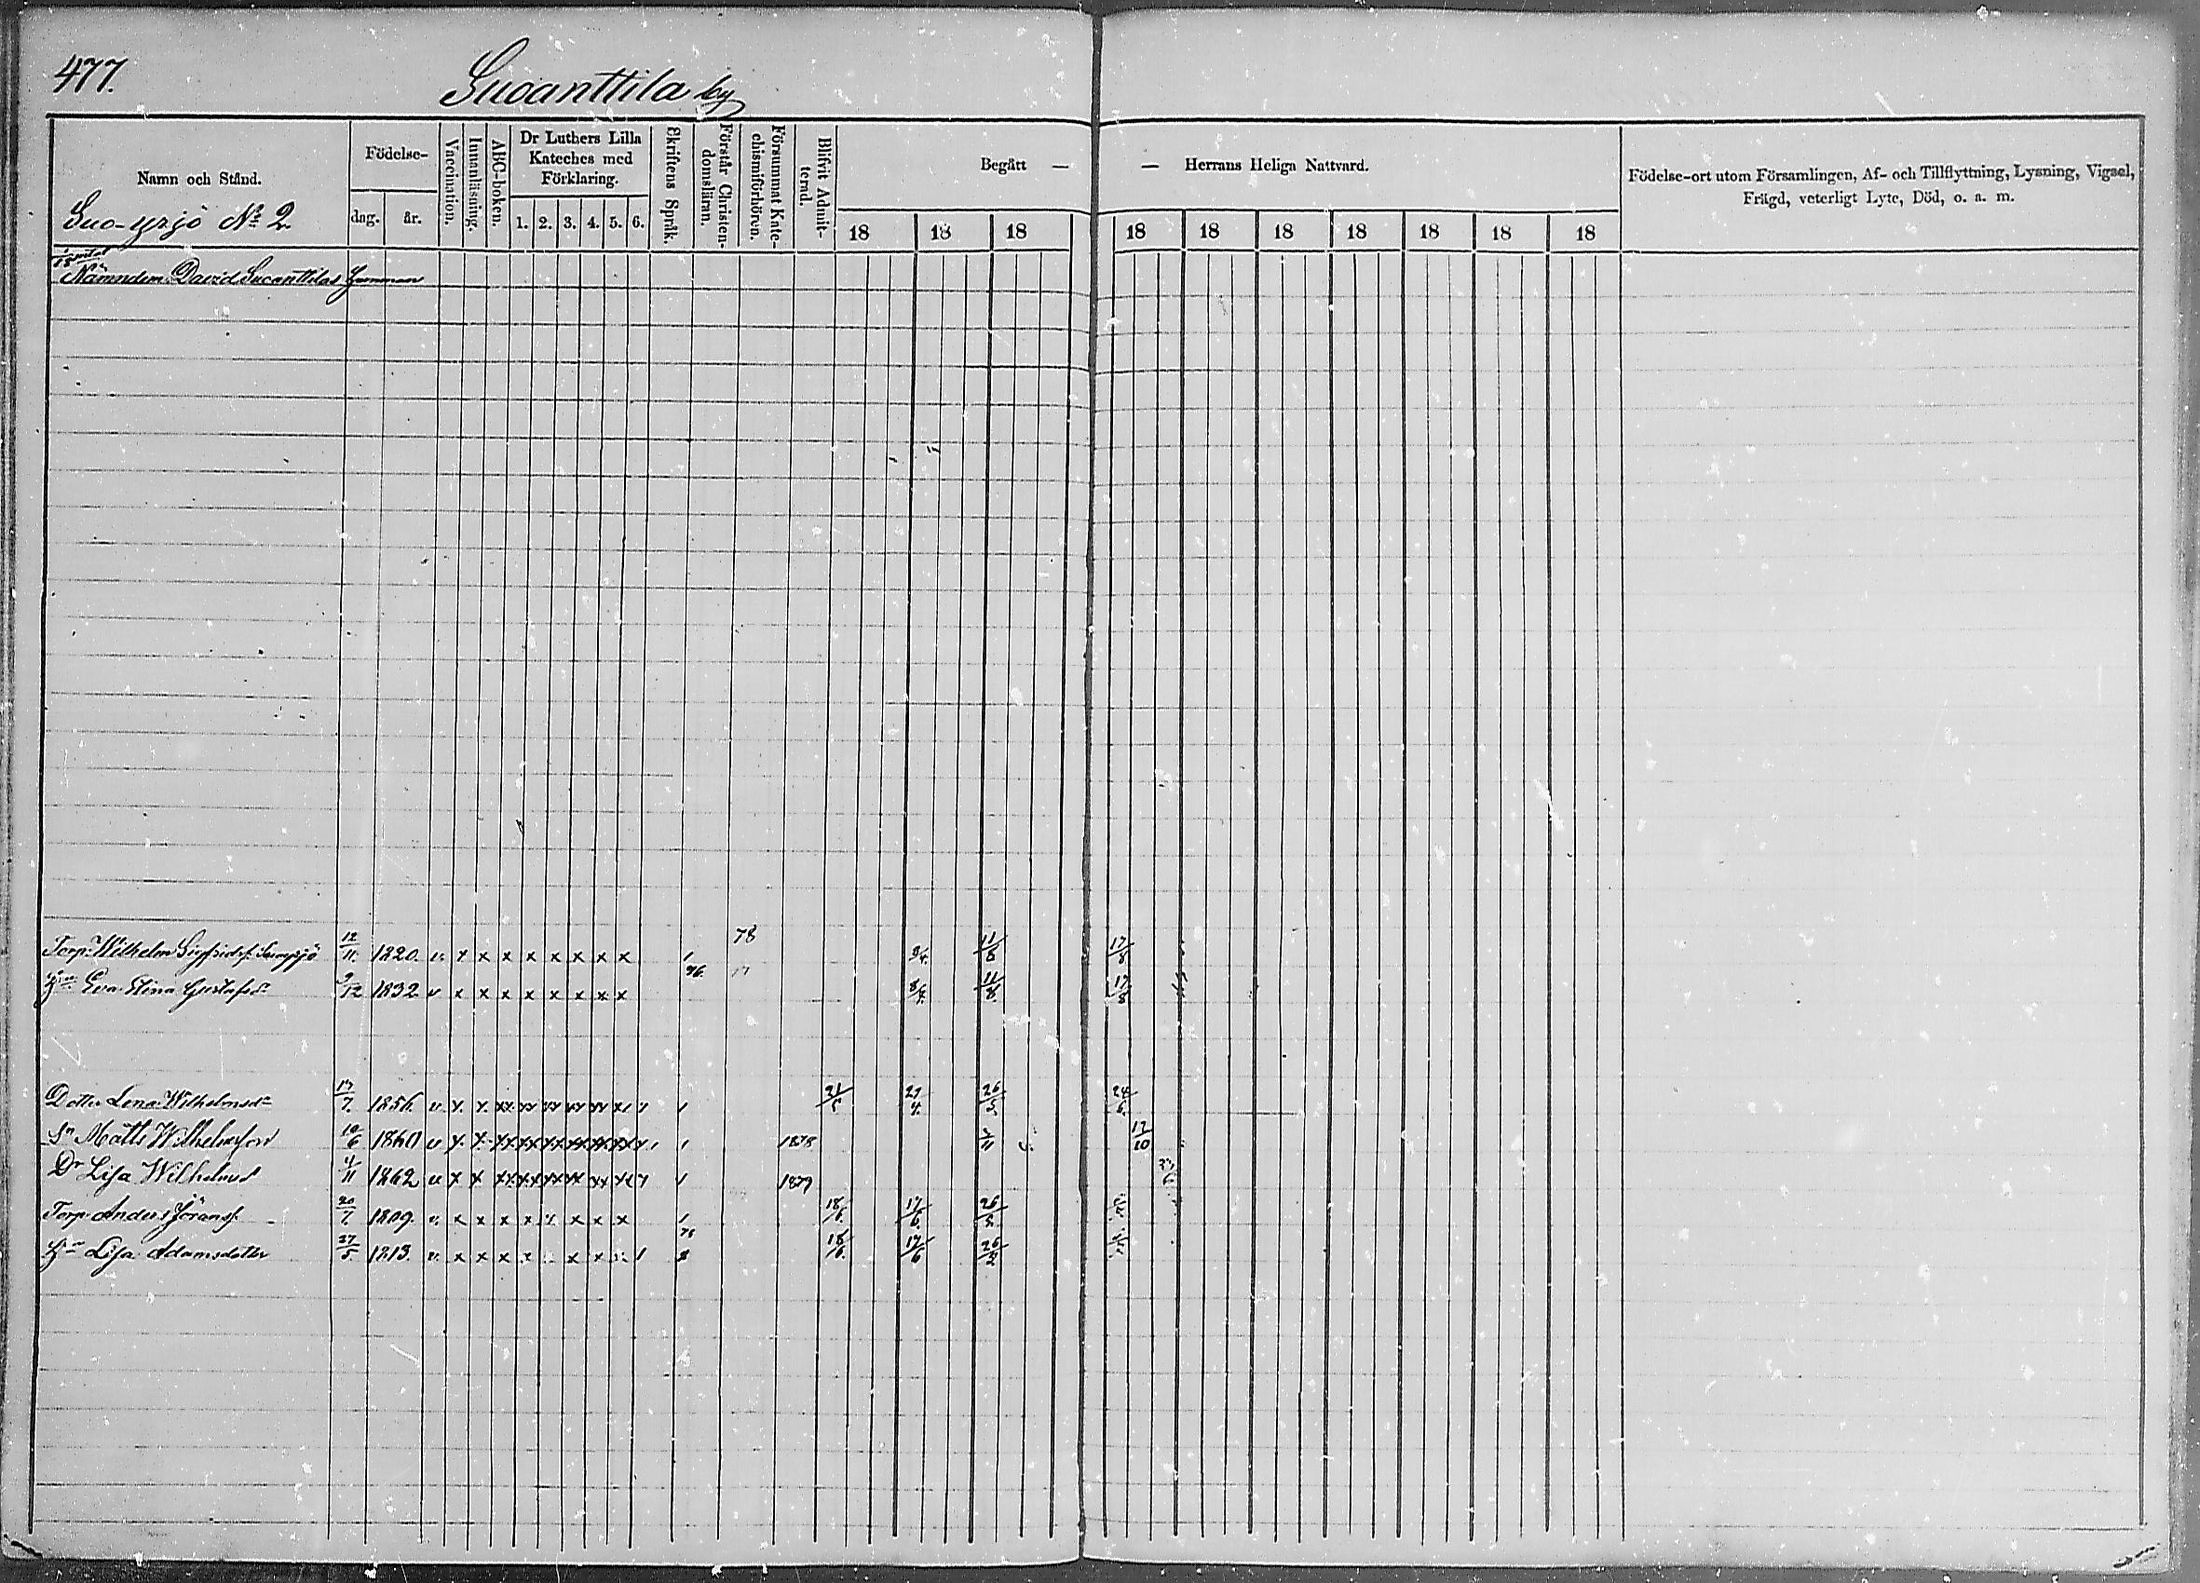 477.
Suoanttila by
Namn och Stånd.
Födelse-
dag. år.
Vaccination.
Innanläsning.
ABC-boken.
Dr Luthers Lilla Kateches med Förklaring.
1. 2. 3. 4. 5. 6.
Skriftens Språk.
Förstår Christendomsläran.
Försummat Katechismiförhören.
Blifvit Admitterad.
Begått — — Herrans Heliga Nattvard.
18 18 18 18 18 18 18 18 18 18
Födelse-ort utom Församlingen, Af- och Tillflyttning, Lysning, Vigsel,
Frägd, veterligt Lyte, Död, o. a. m.
Suo-yrjö No 2
Nämndem. David Suoanttilas Hemman
78
Torp. Wilhelm Sigfridsf. 12/11 1820. v. x x x x x x x x 1 11/8 17/8
Hu Eva Stina Gustafsdr 9/12 1832 v x x x x x x x x 76. 8/7 11/8 17/8
Dotter Lena Wilhelmsdr 1856. v. 1 21/5 27/4 26/5 24/6
Sn Matts Wilhelmsson 1860 v 1 1878 17/10
Dr Lisa Wilhelmsd 4/11 1862 v 1 1879
Torp. Anders Göransf. 20/7 1809. v. x x x x x x x 1 18/6 17/6 26/5
Hu Lisa Adamsdotter 27/5 1813. v. x x x x x x 1 18/6 17/6 26/5